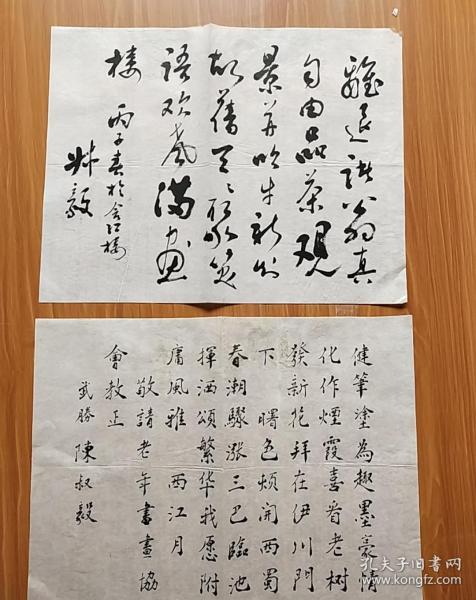 離退諸翁真
自由品茶觀
景并吹牛新朋
故舊天天聚笑
語欢声满画
楼 丙子春於会江楼
叔毅
健筆塗為趣墨豪清
化作煙霞喜看老树
發新花拜在伊川門
下曙色頻開西蜀
春潮驟漲三巴臨池
揮洒頌繁华我愿附
庸風雅 西江月
敬請老年書畫協
會教正
武勝 陳叔毅
孔夫子旧书网
www.kongfz.com